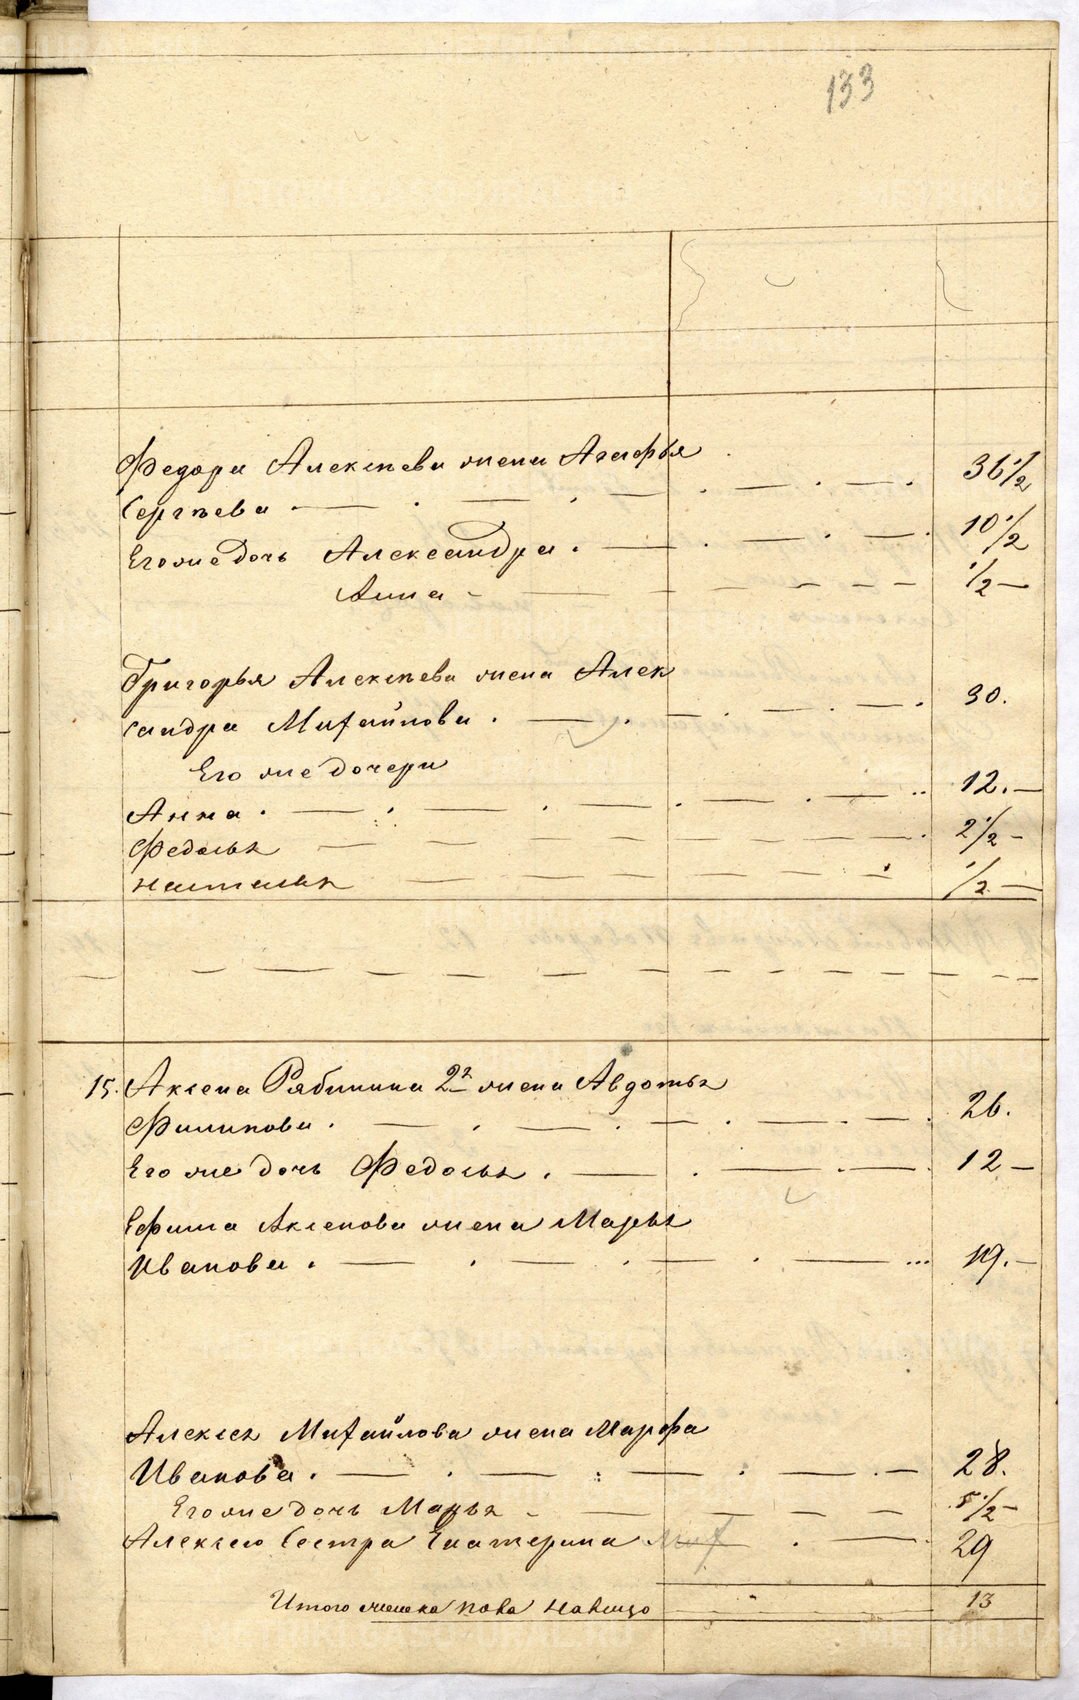 133
Федора Алексѣева жена Агафья
Сергѣева 36 1/2
Его же дочь Александра 10 1/2
Анна 1/2
Григорья Алексѣева жена Алек
сандра Михайлова 30.
Его же дочери
Анна 12.
Федосья 2 1/2
Наталья 1/2
15. Аксена Рябинина 2я жена Авдотья
Филипова 26.
Его же дочь Федосья 12
Ефима Аксенова жена Марья
Иванова 19.
Алексея Михайлова жена Марфа
Иванова 28.
Его же дочь Марья 5 1/2
Алексею сестра Екатерина 29
Итого женска пола налицо 13